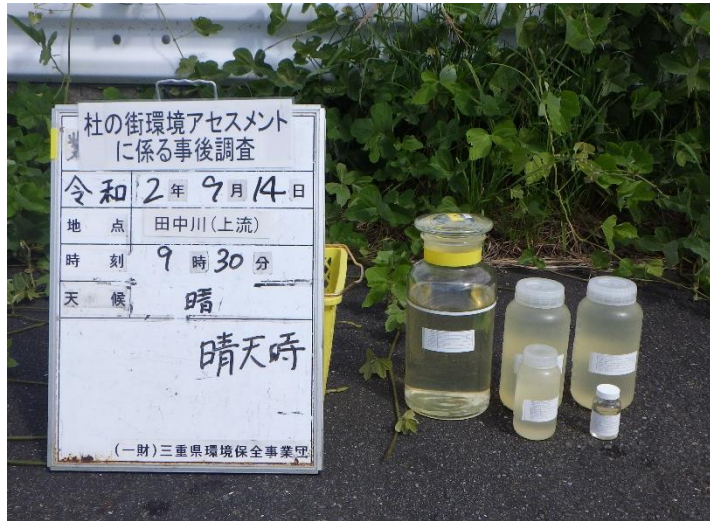 杜の街環境アセスメント
に係る事後調査
令和 2年 9月 14日
地点 田中川(上流)
時刻 9時30分
天候 晴
晴天時
(一財)三重県環境保全事業団